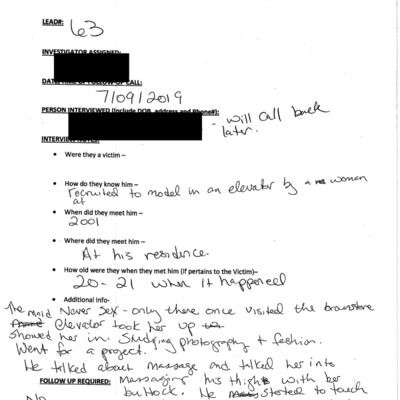 LEAD#: 63
INVESTIGATOR ASSIGNED:
CALL:
7/09/2019
PERSON INTERVIEWED (Include DOB, address and Phone#):
- will call back
later.
INTERVIEW NOTES:
• Were they a victim –
• How do they know him –
recruited to model in an elevator by a woman
at
• When did they meet him –
2001
• Where did they meet him –
At his residence.
• How old were they when they met him (if pertains to the Victim)–
20 - 21 when it happened
• Additional Info-
The maid Never Sex - only there once visited the brownstone
Elevator took her up
showed her in. Studying photography + fashion.
Went for a project.
He talked about massage and talked her into
FOLLOW UP REQUIRED: Massaging his thighs with her
buttock. He started to touch
No